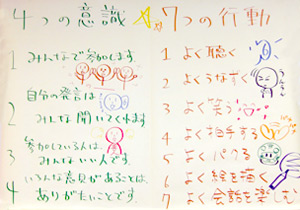 4つの意識
1 みんなで参加します。
2 自分の発言は
みんな聞いてくれます
3 参加している人は
みんないい人です。
4 いろんな意見があることは、
ありがたいことです。
7つの行動
1 よく聴く
2 よくうなずく
3 よく笑う
4 よく拍手する
5 よくパクる
6 よく絵を描く
7 よく会話を楽しむ